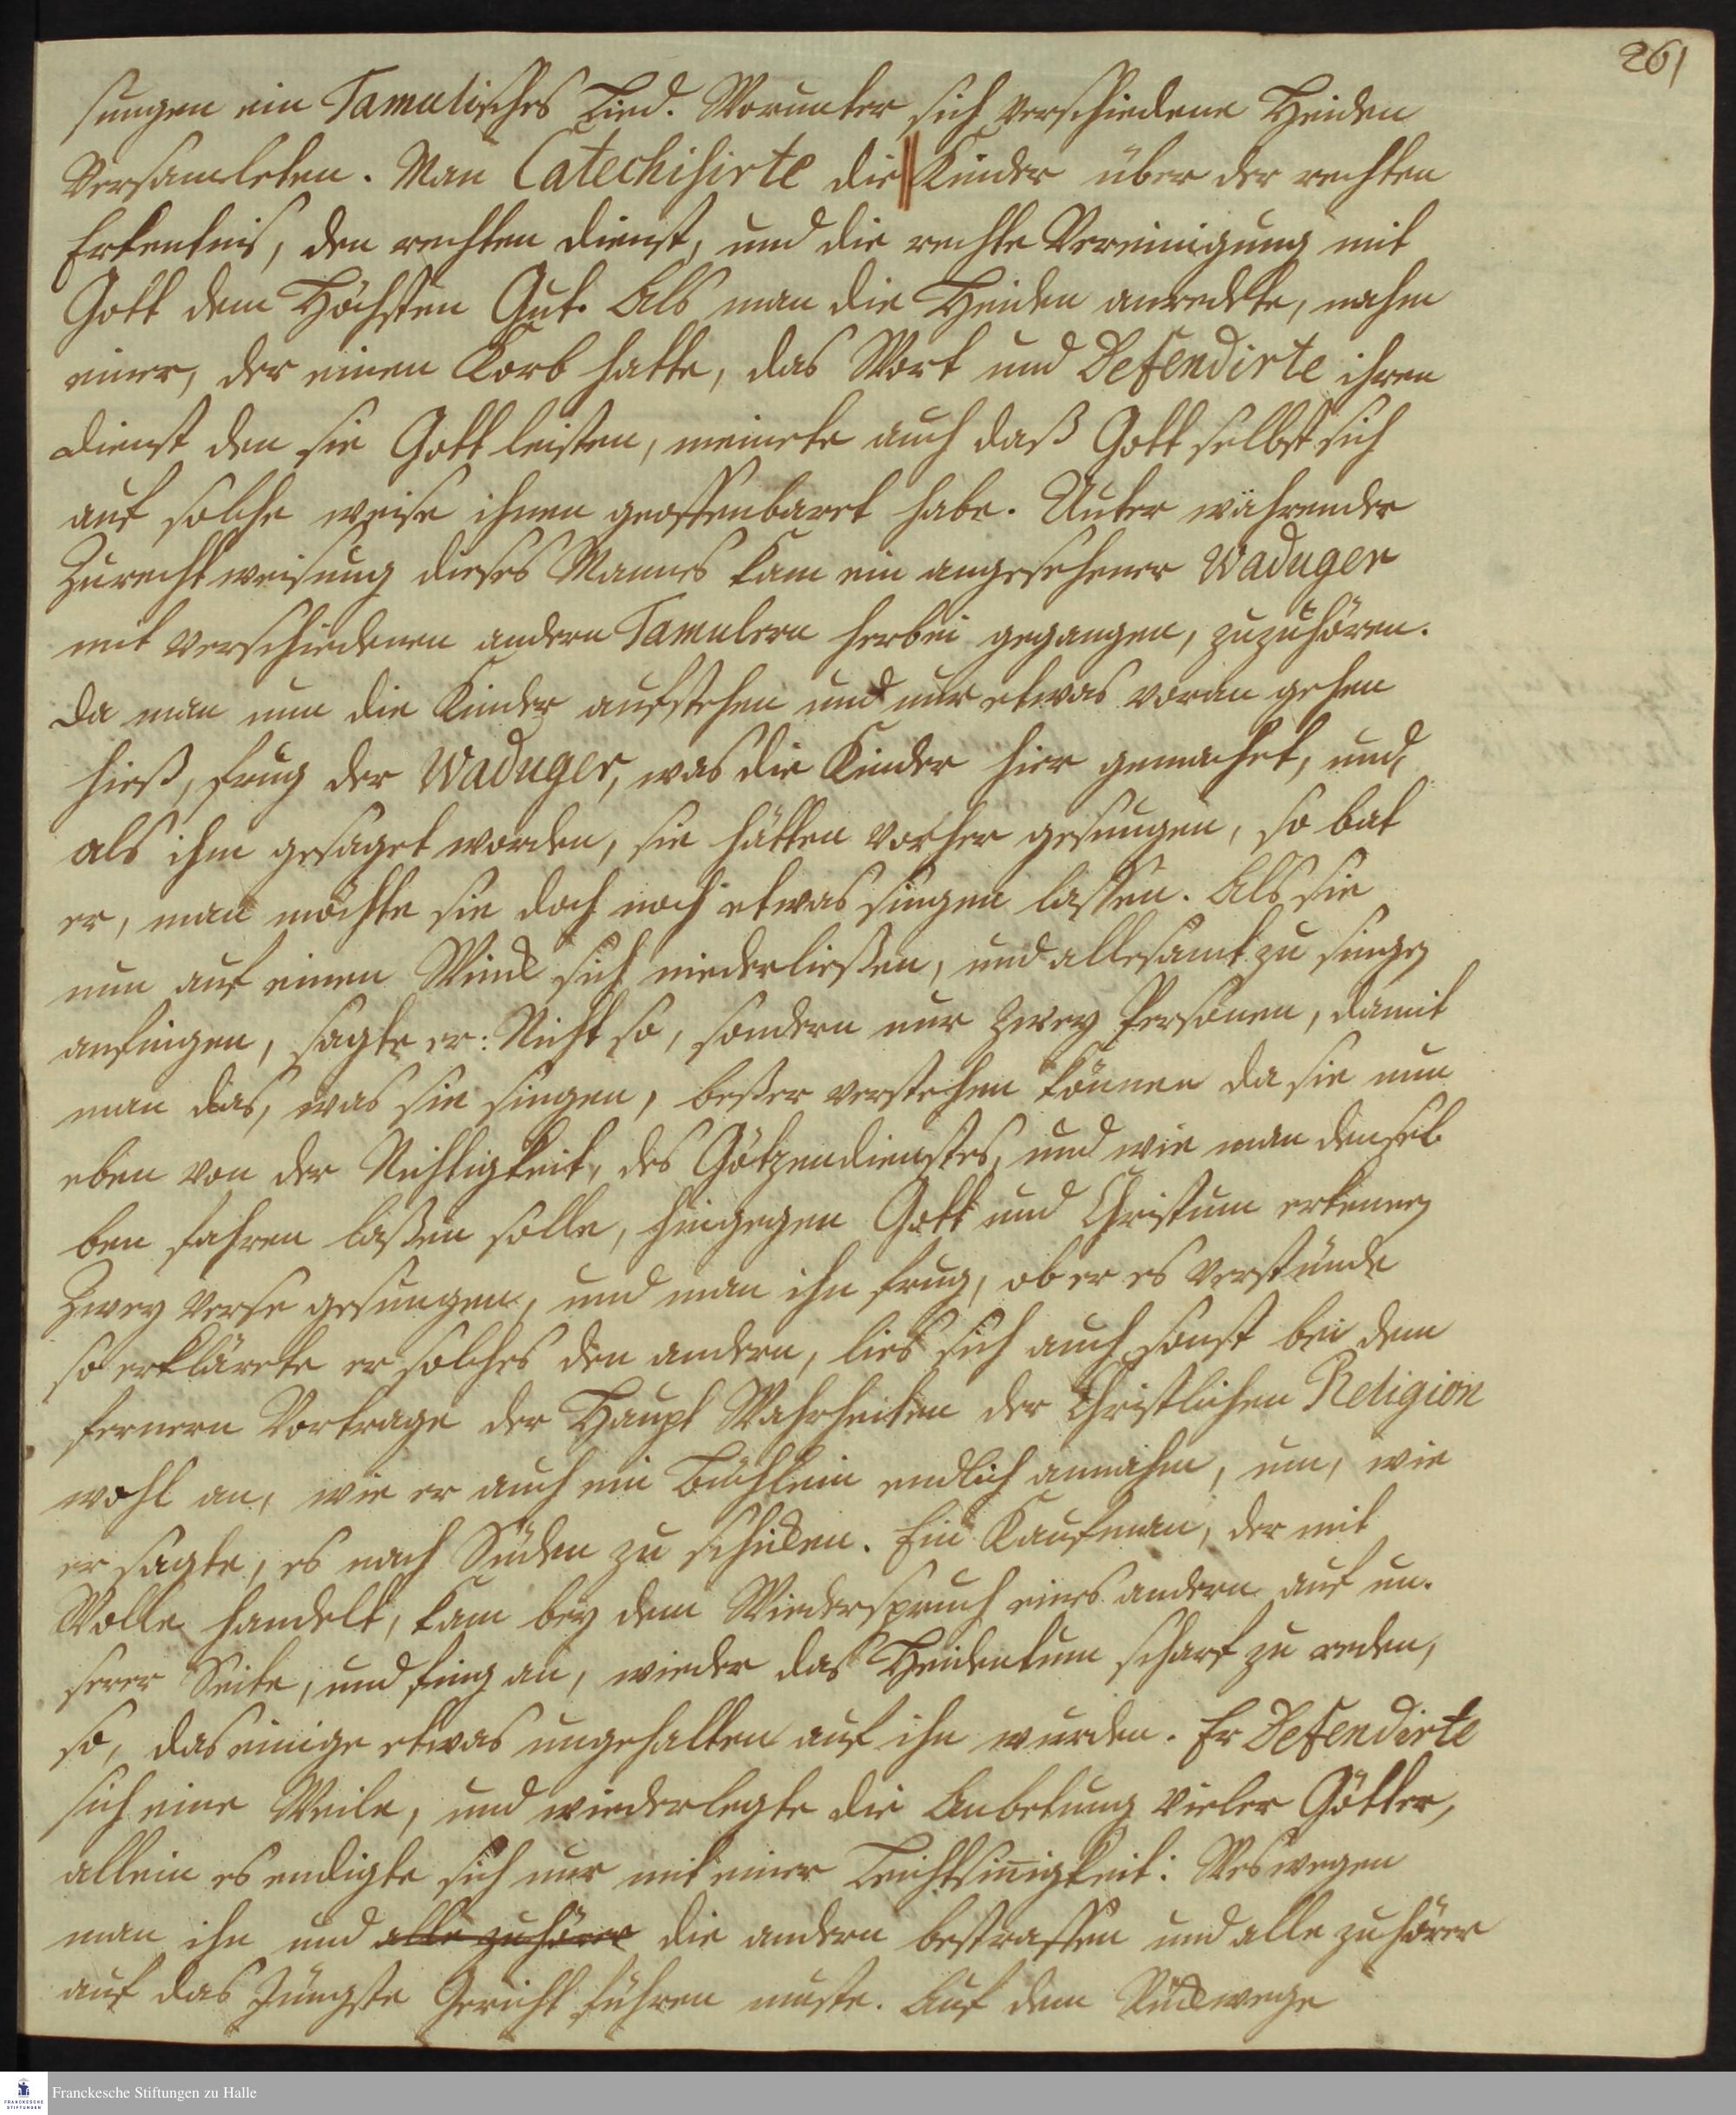 261
sungen ein Tamulisches Lied. Worunter sich verschiedene Heiden
Versamleten. Man Catechisirte die Kinder über der rechten
Erkentnis, den rechten dienst, und die rechte Vereinigung mit
Gott dem Höchsten Gut. Als man die Heiden anredete, nahm
einer, der einen Korb hatte, das Wort und Defendirte ihren
dienst den sie Gott leisten, meinete auch daß Gott selbst sich
auf solche weise ihnen geoffenbaret habe. Unter währender
Zurechtweisung dieses Mannes kam ein angesehener Waduger
mit verschiedenen andern Tamulern herbei gegangen, zuzuhören.
da man nun die Kinder aufstehen und nur etwas voran gehen
hieß, frug der Waduger, was die Kinder hier gemachet, und,
als ihm gesaget worden, sie hätten vorher gesungen, so bat
er, man möchte sie doch noch etwas singen lassen. Als sie
nun auf einen Wink sich niederließen, und allesamt zu singen
anfingen, sagte er: Nicht so, sondern nur zwey Personen, damit
man das, was sie singen, beßer verstehen könne. da sie nun
eben von der Nichtigkeit, des Götzendienstes, und wie man densel-
ben fahren laßen solle, hingegen Gott und Christum erkennen
zwey Verse gesungen, und man ihn frug, ob er es verstünde
so erklärete er solches den andern, lies sich auch sonst bei dem
fernern Vortrage der Haupt Wahrheiten der Christlichen Religion
wohl an, wie er auch ein Büchlein endlich annahm, um, wie
er sagte, es nach Süden zu schicken. Ein Kaufman, der mit
Wolle handelt, kam bey dem Wiederspruch eines andern auf un-
serer Seite, und fing an, wieder das Heidentum scharf zu reden,
so, das einige etwas ungehalten auf ihn wurden. Er Defendirte
sich eine Weile, und wiederlegte die Anbetung vieler Götter,
allein es endigte sich nur mit einer Leichtsinnigkeit: Weswegen
man ihn und alle zuhörer die andern bestraffen und alle zuhörer
auf das Jüngste Gericht führen muste. Auf dem Rückwege
Franckesche Stiftungen zu Halle
FRANCKESCHE
STIFTUNGEN